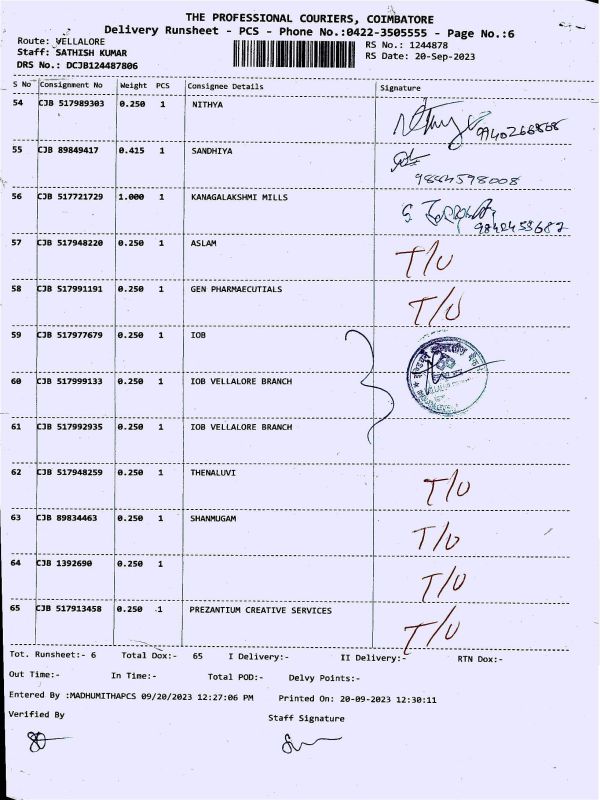 THE PROFESSIONAL COURIERS, COIMBATORE
Delivery Runsheet - PCS - Phone No.:0422-3505555 - Page No.:6
Route: VELLALORE RS No.: 1244878
Staff: SATHISH KUMAR RS Date: 20-Sep-2023
DRS No.: DCJB124487806
S No Consignment No Weight PCS Consignee Details Signature
54 CJB 517989303 0.250 1 NITHYA
9940266868
55 CJB 89849417 0.415 1 SANDHIYA
9884598008
56 CJB 517721729 1.000 1 KANAGALAKSHMI MILLS
9842453687
57 CJB 517948220 0.250 1 ASLAM T/U
58 CJB 517991191 0.250 1 GEN PHARMAECUTIALS T/U
59 CJB 517977679 0.250 1 IOB
60 CJB 517999133 0.250 1 IOB VELLALORE BRANCH
61 CJB 517992935 0.250 1 IOB VELLALORE BRANCH
62 CJB 517948259 0.250 1 THENALUVI T/U
63 CJB 89834463 0.250 1 SHANMUGAM T/U
64 CJB 1392690 0.250 1 T/U
65 CJB 517913458 0.250 1 PREZANTIUM CREATIVE SERVICES T/U
Tot. Runsheet:- 6 Total Dox:- 65 I Delivery:- II Delivery:- RTN Dox:-
Out Time:- In Time:- Total POD:- Delvy Points:-
Entered By :MADHUMITHAPCS 09/20/2023 12:27:06 PM Printed On: 20-09-2023 12:30:11
Verified By Staff Signature